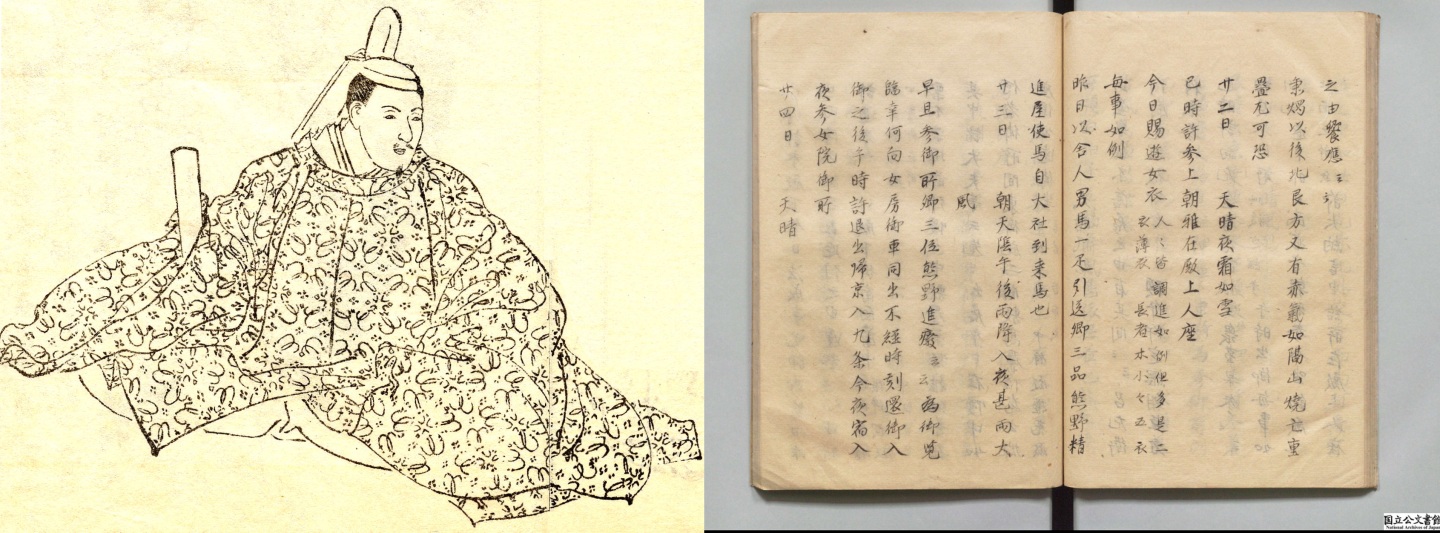 之由饗應云々
秉燭以後北艮方又有赤氣如隔山燒亡重
疊尤可恐
廿二日　天晴夜霜如雪
巳時許参上朝雅在殿上人座
今日賜遊女衣人々皆調進如例但多是二
衣薄衣長者木小々五衣
毎事如例
昨日以舎人男馬一疋引送卿三品熊野精
進屋使馬自大社到来馬也
廿三日　朝天陰午後雨降入夜甚雨大
風
早旦参御所卿三位熊野進發云々為御覧
臨幸何向女房御車同出不經時刻還御入
御之後午時許退出歸京入九条今夜宿入
夜参女院御所
廿四日　天晴
国立公文書館
National Archives of Japan